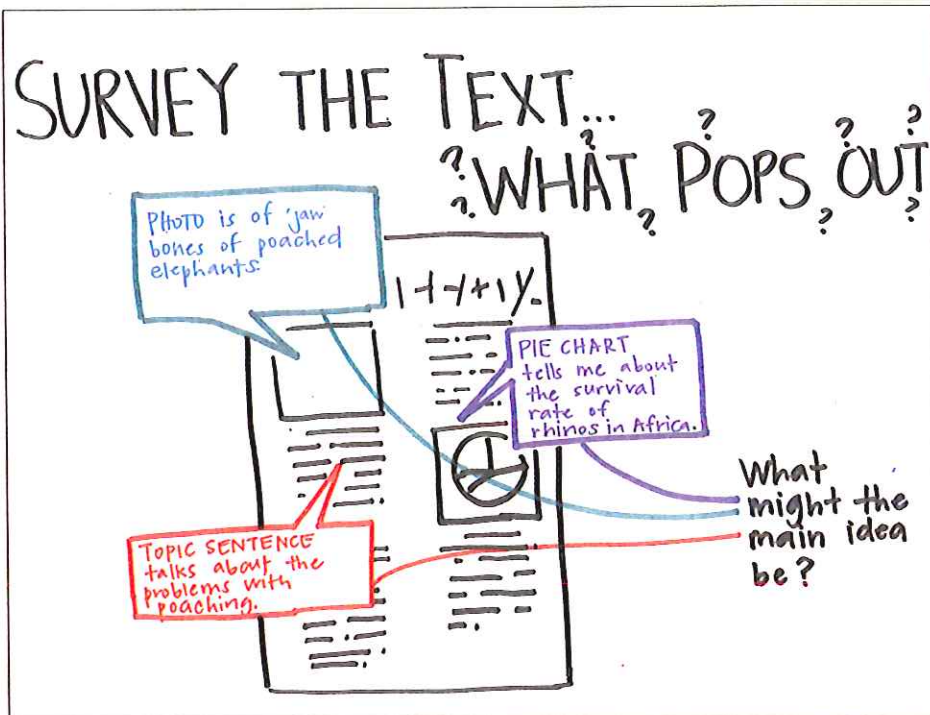 SURVEY THE TEXT...
WHAT POPS OUT
PHOTO is of jaw
bones of poached
elephants.
PIE CHART
tells me about
the survival
rate of
rhinos in Africa.
TOPIC SENTENCE
talks about the
problems with
poaching.
What
might the
main idea
be?